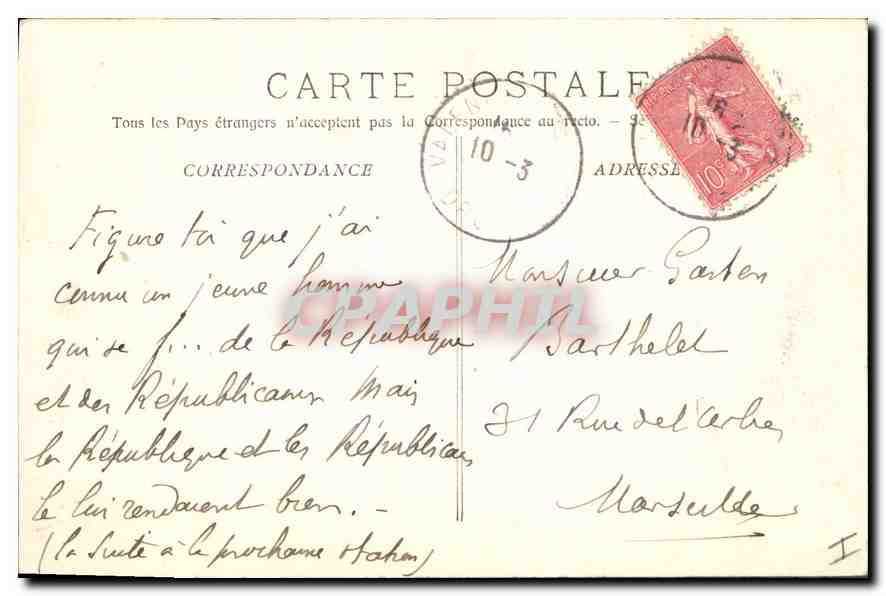 CARTE POSTALE
Tous les Pays étrangers n'acceptent pas la Correspondance au recto. — Se
CORRESPONDANCE
ADRESSE
10 -3
10 -3
10c
Figure toi que j'ai
connu un jeune homme
qui se f... de la République
et des Républicains mais
la République et les Républicains
le lui rendaient bien. —
(la suite à la prochaine station)
Monsieur Gaston
Barthelet
31 Rue de l'Arbre
Marseille
I
CPAPHIL